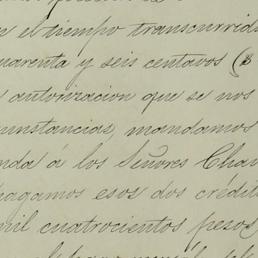 e el tiempo transcurrid
uarenta y seis centavos ($
autorizacion que se nos
cunstancias, mandamos
nda á los Señores Chav
hagamos esos dos credit
mil cuatrocientos pesos